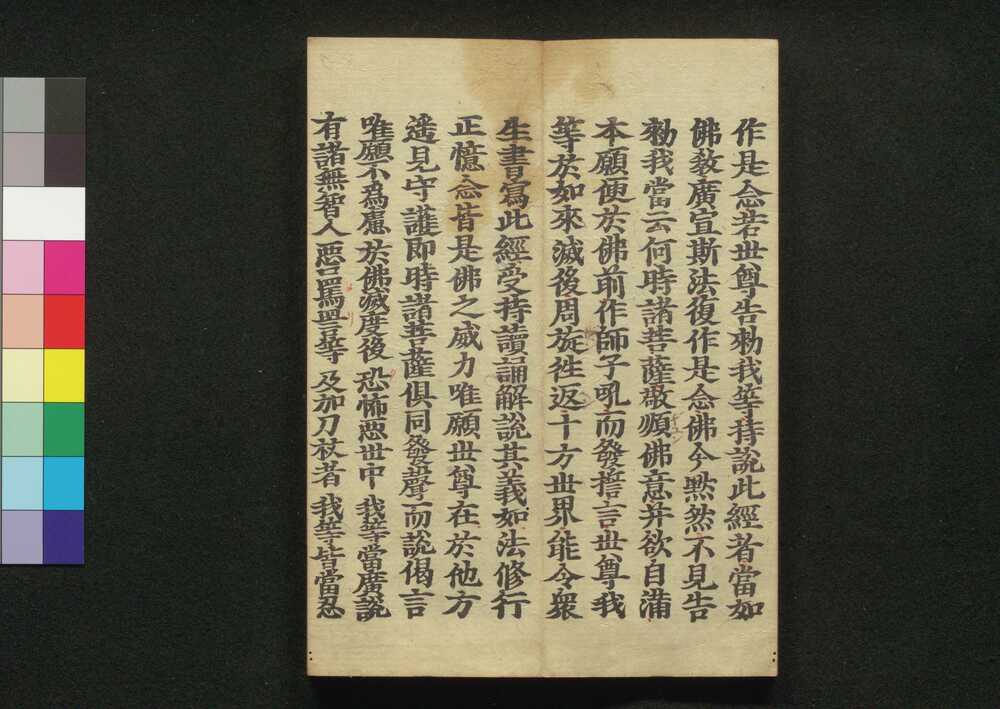 作是念若世尊告勅我等持說此經者當如
佛教廣宣斯法復作是念佛今默然不見告
勅我當云何時諸菩薩敬順佛意并欲自滿
本願便於佛前作師子吼而發誓言世尊我
等於如來滅後周旋往返十方世界能令衆
生書寫此經受持讀誦解說其義如法修行
正憶念皆是佛之威力唯願世尊在於他方
遥見守護即時諸菩薩俱同發聲而說偈言
唯願不為慮 於佛滅度後 恐怖惡世中 我等當廣說
有諸無智人 惡口罵詈等 及加刀杖者 我等皆當忍